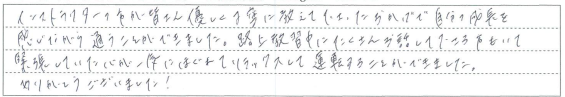 インストラクターの方が皆さん優しく丁寧に教えて下さったおかげで自分の成長を
感じながら通うことができました。路上教習中にたくさんお話して下さる方もいて
緊張していた心が一気にほぐれてリラックスして運転することができました。
ありがとうございました！